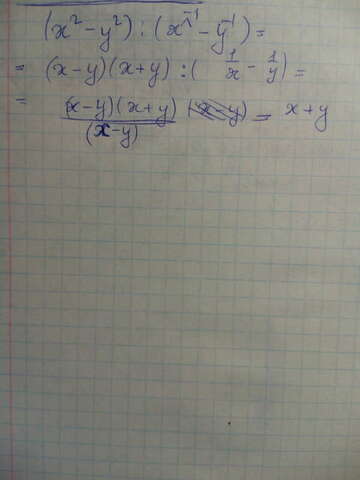 (x² - y²) : (x⁻¹ - y⁻¹) =
= (x-y)(x+y) : (1/x - 1/y) =
= (x-y)(x+y)/(x-y) = x+y